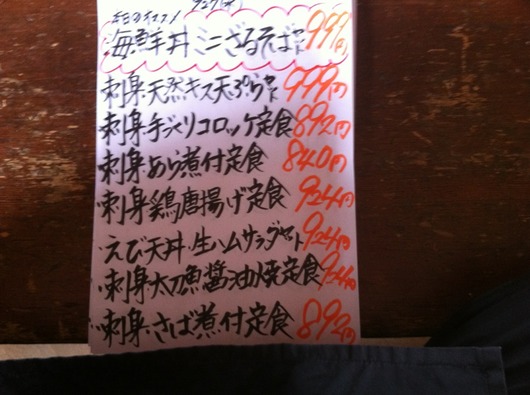 本日のオススメ 9/27(木)
海鮮丼ミニざるそばセット999円
刺身天然キス天ぷらセット999円
刺身手づくりコロッケ定食892円
刺身あら煮付定食840円
刺身鶏唐揚げ定食924円
えび天丼生ハムサラダセット924円
刺身太刀魚醤油焼定食924円
刺身さば煮付定食892円